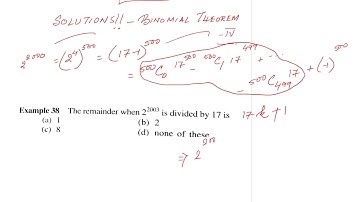 SOLUTIONS!! – BINOMIAL THEOREM
– IV
2^2000 = (2^4)^500 = (17-1)^500
= ^500C_0 17^500 - ^500C_1 17^499 + ... - ^500C_499 17 + (-1)^500
Example 38 The remainder when 2^2003 is divided by 17 is 17k + 1
(a) 1 (b) 2
(c) 8 (d) none of these
⇒ 2